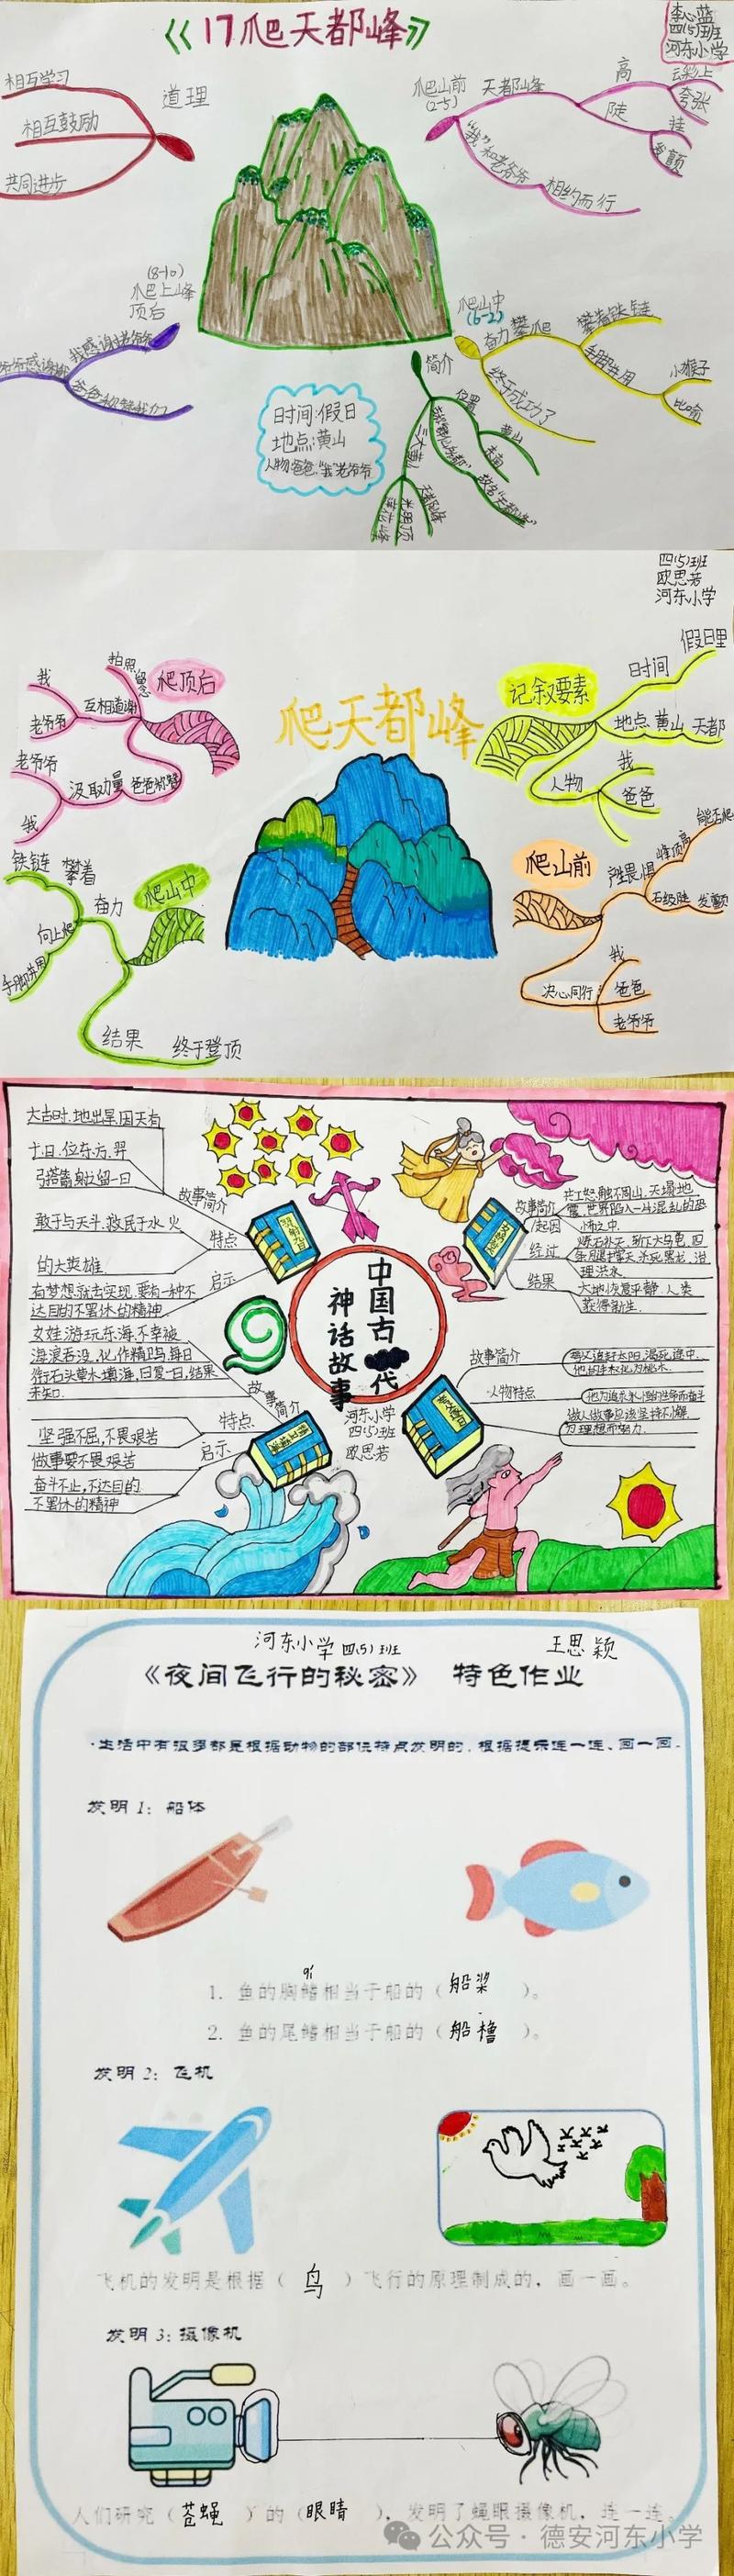 《17爬天都峰》
李心蓝
四(5)班
河东小学
相互学习
相互鼓励
共同进步
道理
爬山前
(2-5)
天都峰
高
云彩上
夸张
陡
挂
发颤
"我"和老爷爷
相约而行
(8-10)
爬上峰
顶后
我感谢老爷爷
爷爷感谢我
爸爸称赞我们
爬山中
(6-7)
奋力攀爬
攀着铁链
手脚并用
小猴子
比喻
终于成功了
简介
位置
黄山
东南
故名"天都峰"
三大黄山
天都峰
光明顶
莲花峰
时间:假日
地点:黄山
人物:爸爸,"我"老爷爷
四(5)班
欧思若
河东小学
爬天都峰
爬顶后
拍照留念
互相道谢
我
老爷爷
爸爸称赞
汲取力量
老爷爷
我
记叙要素
时间
假日里
地点
黄山
天都
人物
我
爸爸
爬山中
奋力
攀着
铁链
向上爬
手脚并用
结果
终于登顶
爬山前
产生畏惧
峰顶高
石级陡
发颤
决心同行
我
爸爸
老爷爷
中国古代
神话故事
河东小学
四(5)班
欧思若
大古时,地出旱,因天有
十日,位东方,羿
弓搭箭,射九留一日
故事简介
敢于与天斗,救民于水火
的大英雄
特点
有梦想就去实现,要有一种不
达目的不罢休的精神
启示
女娃游玩东海,不幸被
海浪吞没,化作精卫鸟,每日
衔石头草木填海,日复一日,结果
未知.
故事
简介
坚强不屈,不畏艰苦
特点
做事要不畏艰苦
奋斗不止,不达目的
不罢休的精神
启示
故事简介
起因
共工怒触不周山,天塌地
震,世界陷入一片混乱的恐
怖之中.
经过
炼石补天,斩下大乌龟,四
条腿撑天,杀死黑龙,治
理洪水.
结果
大地恢复平静,人类
获得新生.
故事简介
夸父追赶太阳,渴死途中.
他的手杖化为桃木.
人物特点
做人做事应该坚持不懈,
为理想而努力.
河东小学 四(5)班
王思颖
《夜间飞行的秘密》 特色作业
·生活中有很多都是根据动物的部位特点发明的,根据提示连一连、画一画.
发明1:船体
qí
1. 鱼的胸鳍相当于船的(船桨)。
2. 鱼的尾鳍相当于船的(船橹)。
发明2:飞机
飞机的发明是根据(鸟)飞行的原理制成的,画一画。
发明3:摄像机
人们研究(苍蝇)的(眼睛),发明了蝇眼摄像机,连一连。
公众号·德安河东小学